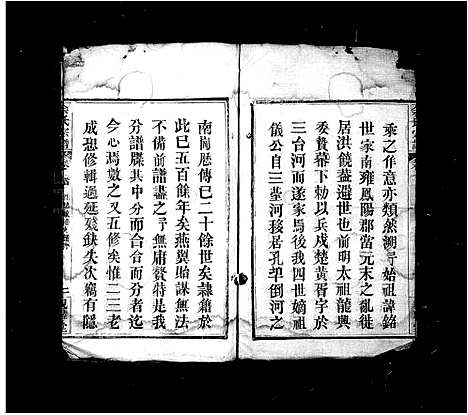 乘之作意亦類然溯予始祖諱銘
世家南雍鳳陽郡當元末之亂徙
居洪饒葢避世也前明太祖龍興
委贄幕下勅以兵戍楚黄胥字於
三台河而遂家焉後我四世嫡祖
儀公自三臺河移居孔阜倒河之
南閱歷傳已二十餘世矣隸籍於
此已五百餘年矣燕翼貽謀無法
不備前譜盡之予無庸贅特是我
分譜牒其中分而合合而分者迄
今心焉數之又五修矣惟二三老
成想修輯過延殘缺失次竊有隱